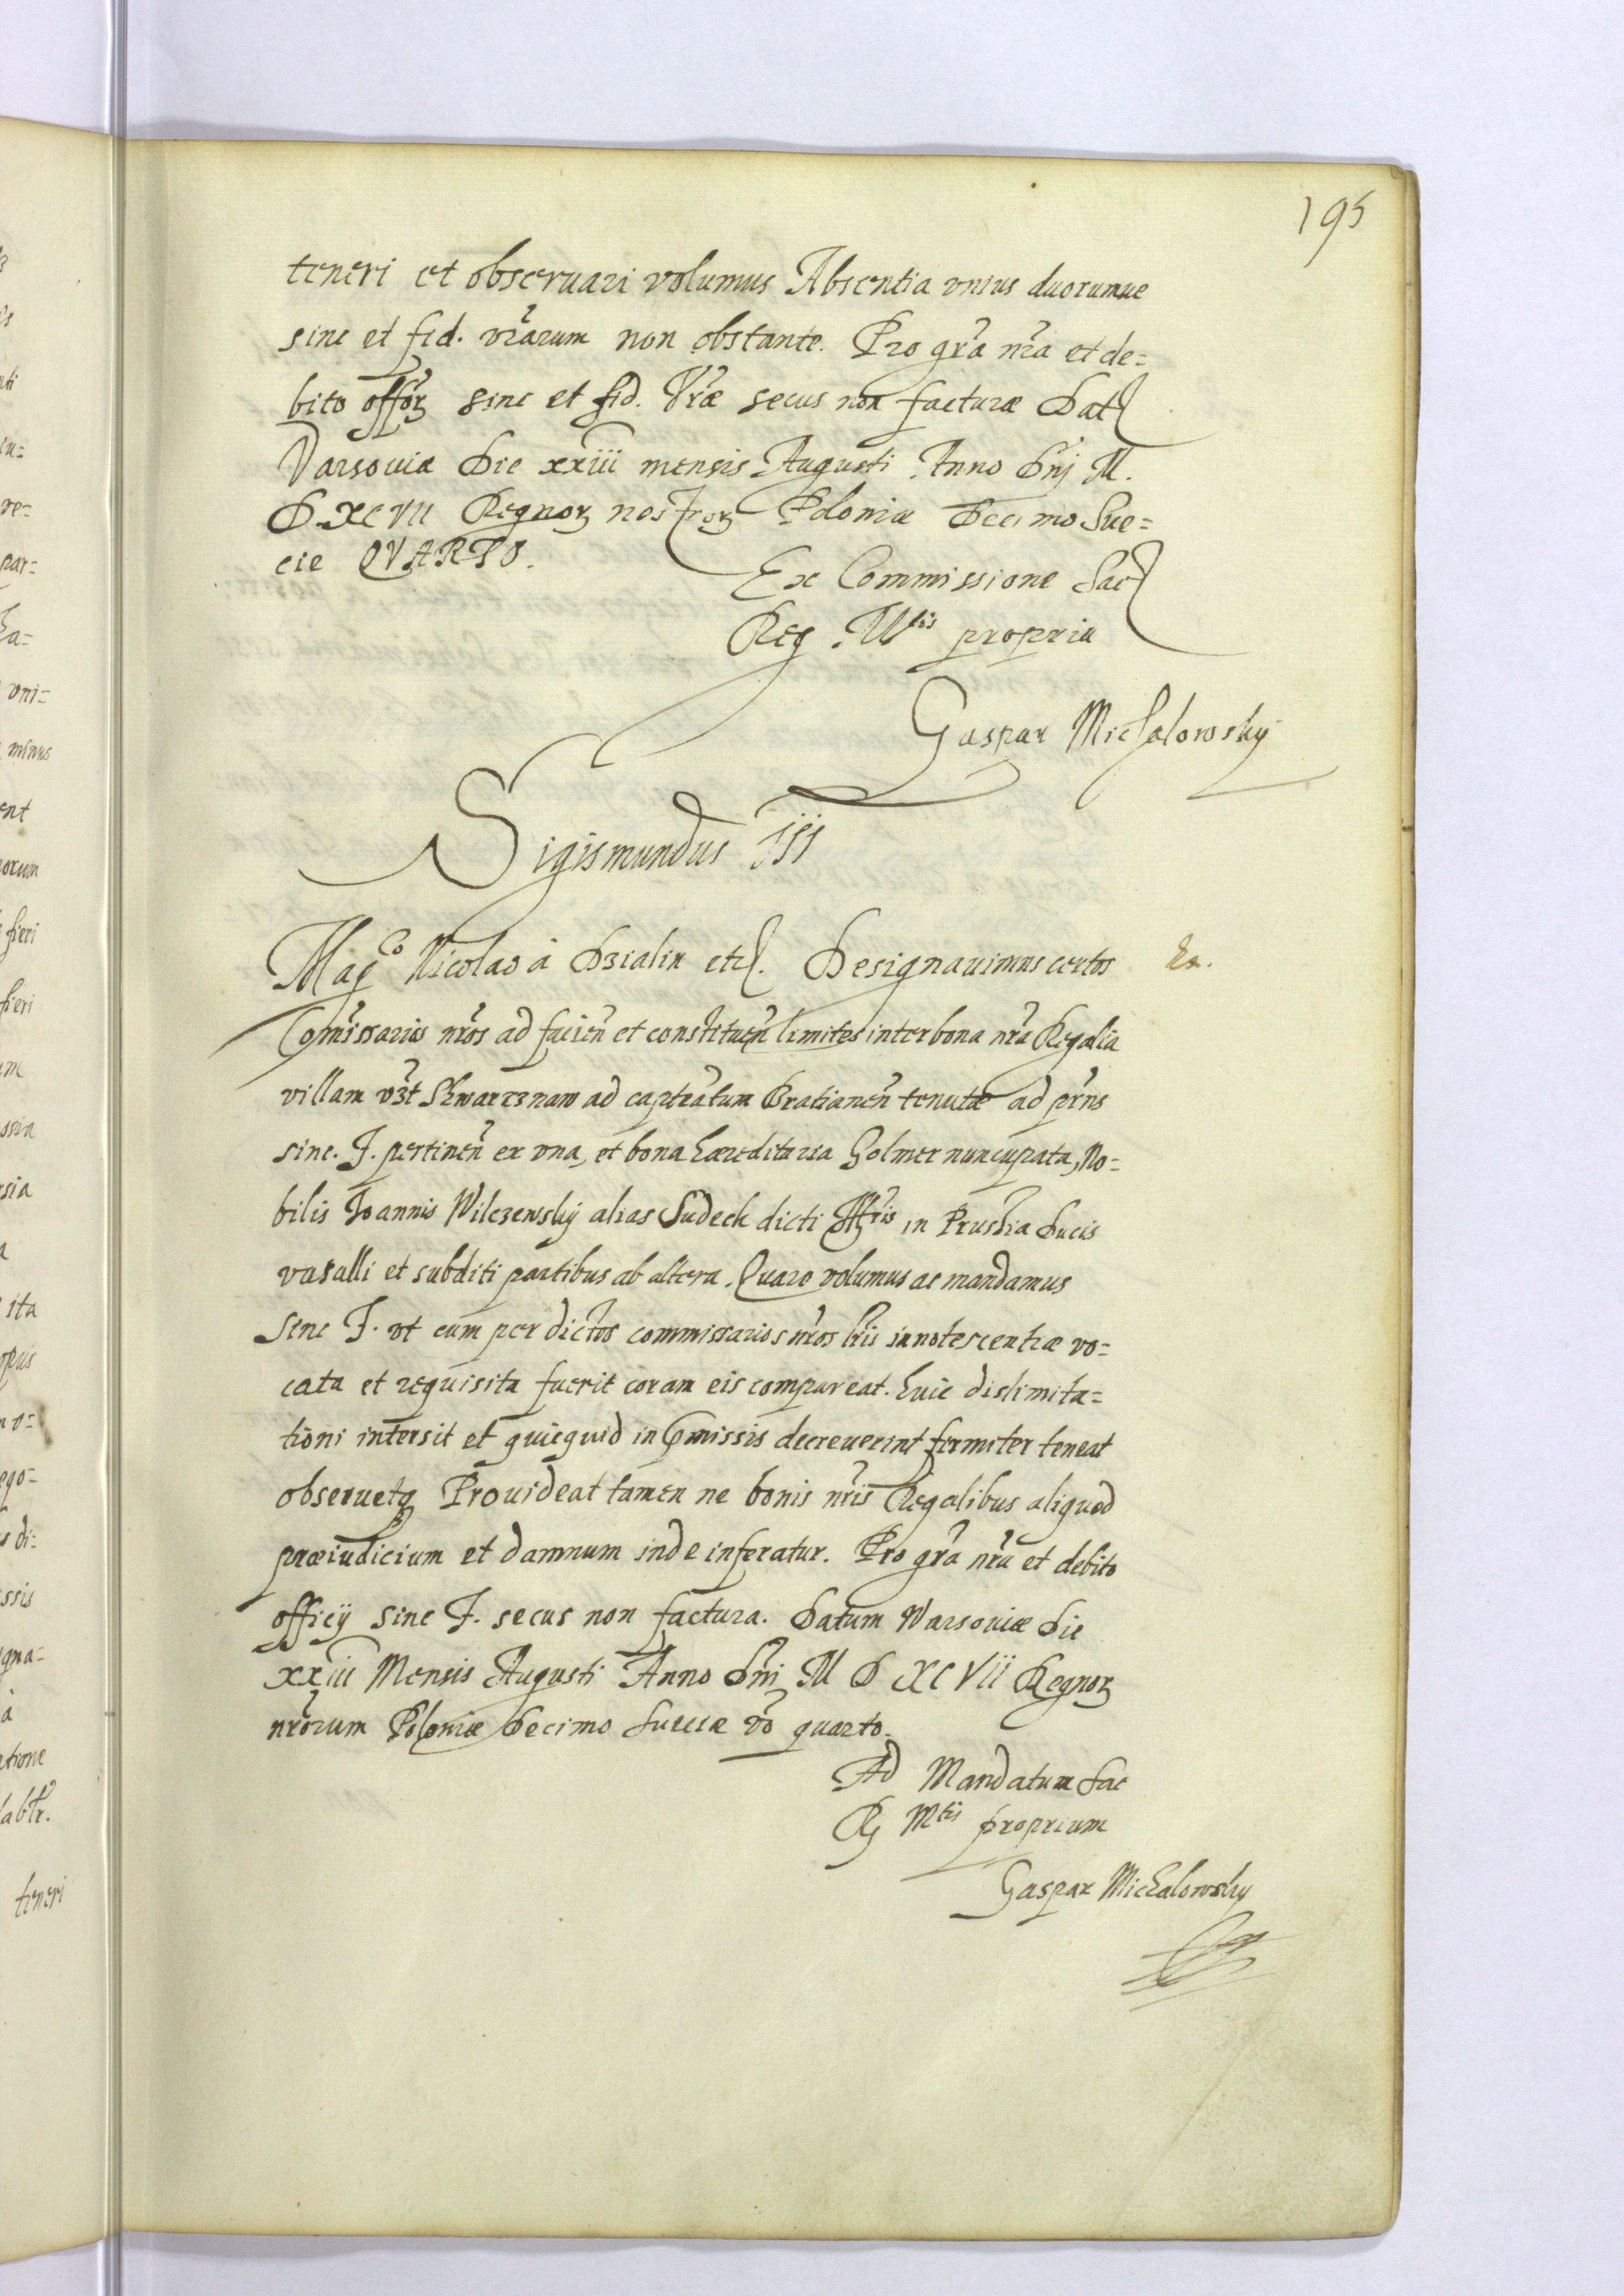 195
teneri et obseruari volumus Absentia vnius duorumue
sinc et fid. vrarum non obstante. Pro gra nra et de=
bito offor sinc et fid. Vræ secus non facturæ Dat
Varsouiæ Die xxiii mensis Augusti Anno Dni M.
D. XC VII Regnor nostror Poloniæ Decimo Sue=
cie QVARTO.
Ex Commissione Sac
Reg. Mtis propria
Gaspar Michalowsky
Sigismundus III
Magco Nicolao à Dzialin etc. Designauimus certos
Comissarios nros ad facien et constituen limites inter bona nra Regalia
villam vzt Shwartznaw ad captratum Bratianen tenutæ ad prns
sinc. T. pertinen ex vna, et bona hæreditaria Golmer nuncupata, No=
bilis Joannis Wilczewsky alias Sudeck dicti Illtris in Prussia Ducis
vasalli et subditi partibus ab altera. Quare volumus ac mandamus
Sinc T. vt cum per dictos commissarios nros lris innotescentiæ vo=
cata et requisita fuerit coram eis compareat. huic dislimita=
tioni intersit et quicquid in pmissis decreuerint firmiter teneat
obseruetq Prouideat tamen ne bonis nris Regalibus aliquod
præiudicium et damnum inde inferatur. Pro gra nra et debito
officij sinc T. secus non factura. Datum Warsouiæ Die
xxiii Mensis Augusti Anno Dni M D XC VII Regnor
nrorum Poloniæ Decimo Sueciæ vo quarto.
Ad Mandatum Sac
Rg Mtis proprium
Gaspar Michalowsky